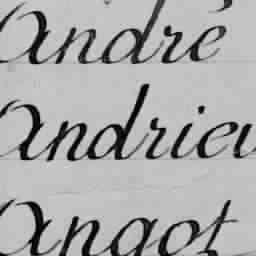 André
Andrieu
Angot